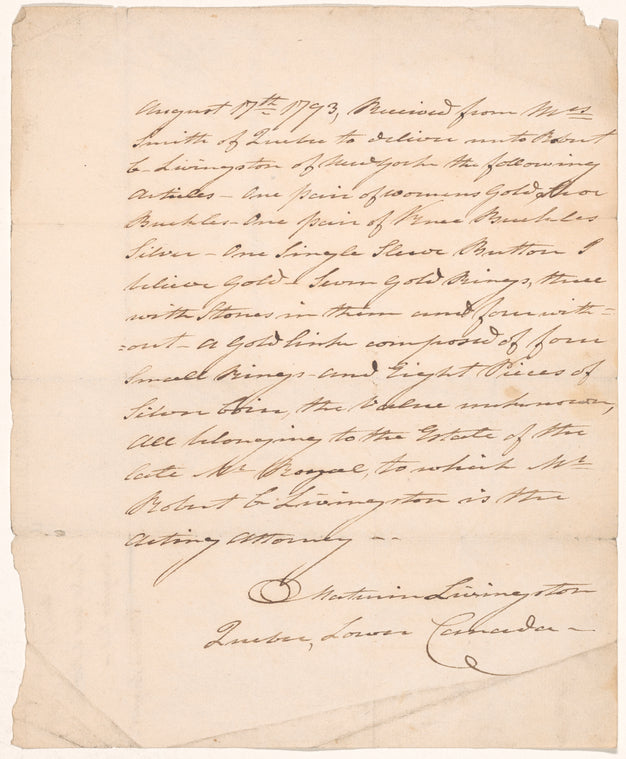 August 17th 1793, Received from Mrs
Smith of Quebec to deliver unto Robert
C. Livingston of New York the following
Articles – One pair of womens Gold Shoe
Buckles – One pair of Knee Buckles
Silver – One Single Sleeve Button I
believe Gold – Seven Gold Rings, three
with Stones in them and four with=
=out – a Gold link composed of four
Small Rings – and Eight Pieces of
Silver Coin, the Value unknown,
All belonging to the Estate of the
late Mr Royal, to which Mr
Robert C. Livingston is the
Acting Attorney – –
Maturin Livingston
Quebec, Lower Canada –